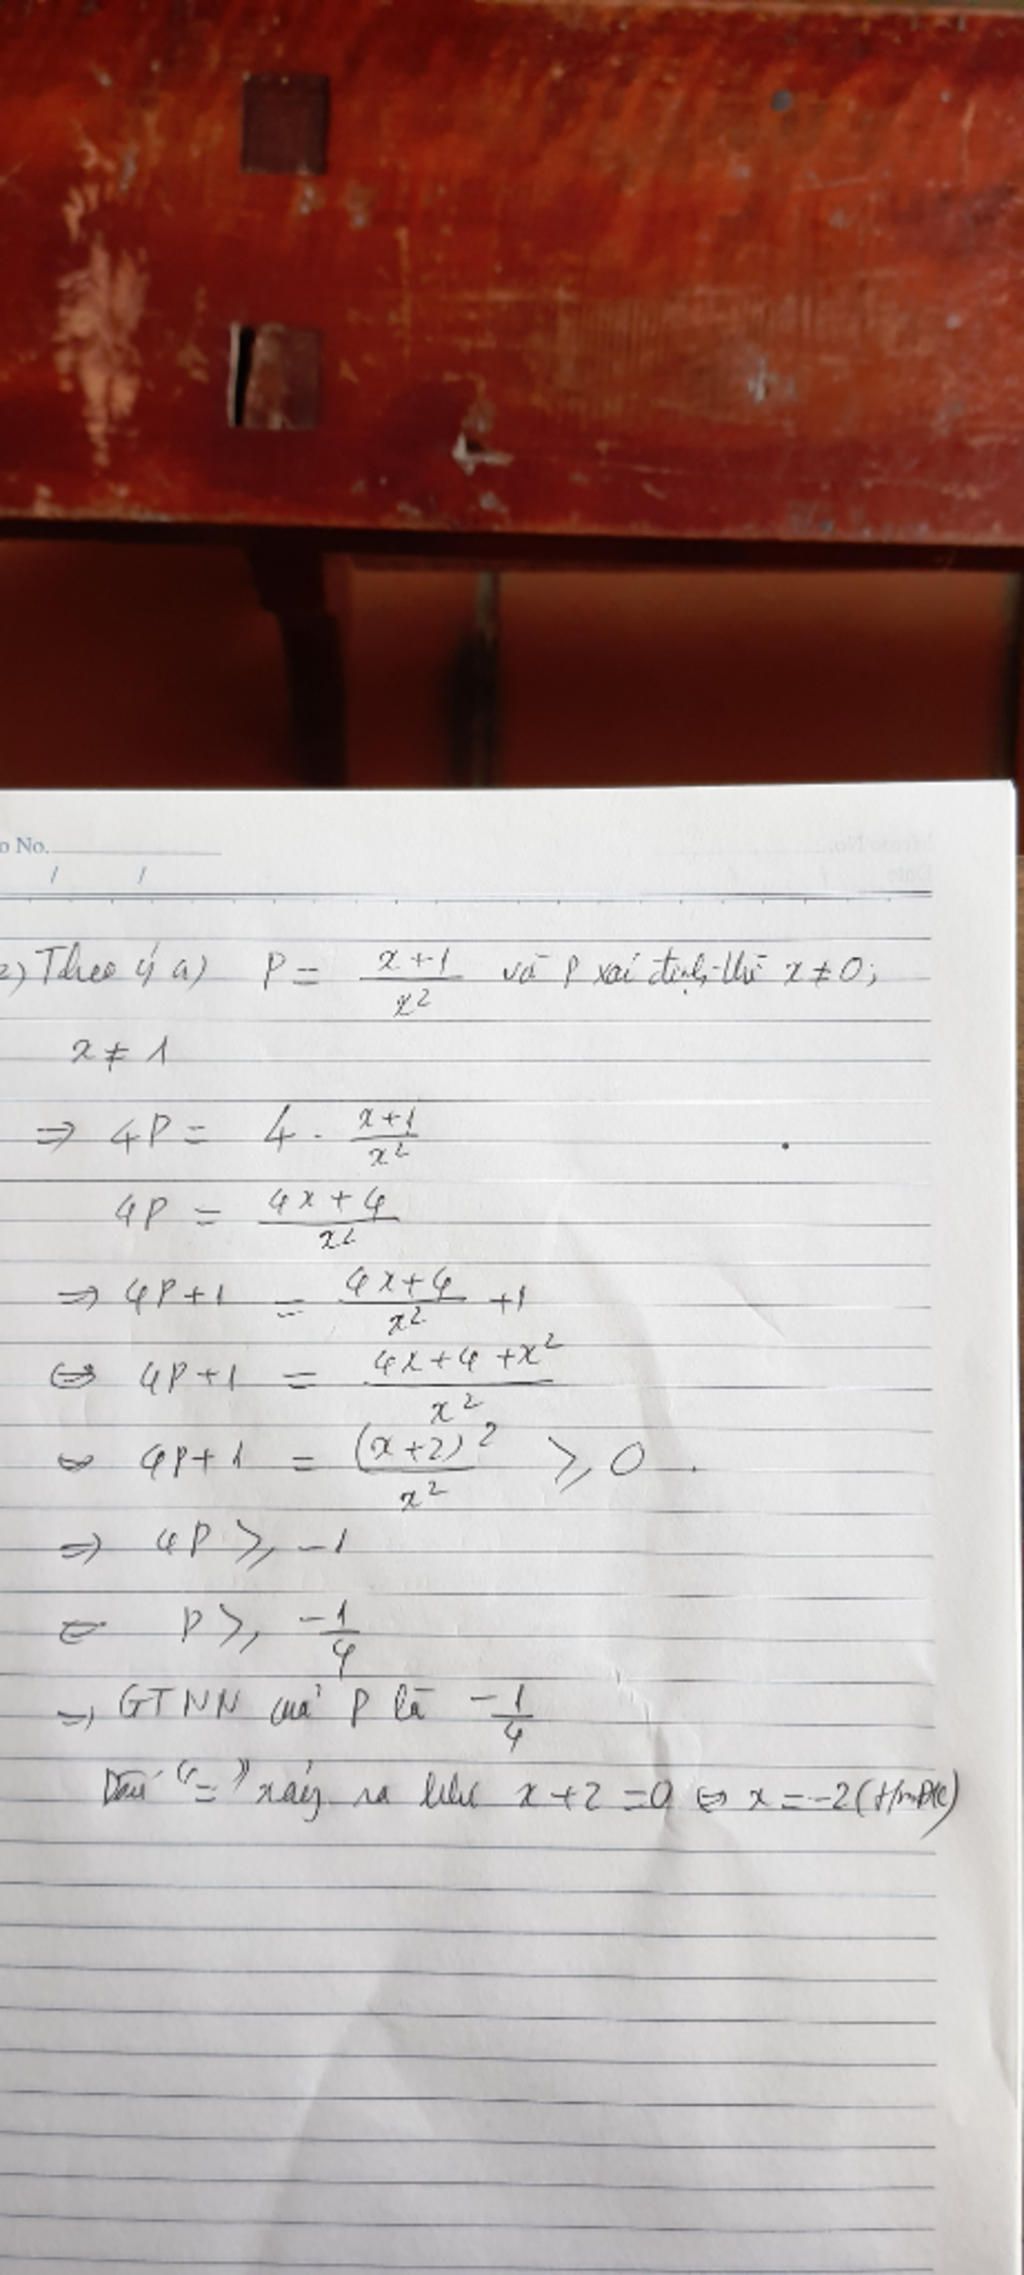 o No.
/ /
2) Theo ý a) P = \frac{x+1}{x^2} và P xái định thì x ≠ 0;
x ≠ 1
=> 4P = 4 . \frac{x+1}{x^2}
4P = \frac{4x+4}{x^2}
=> 4P+1 = \frac{4x+4}{x^2} +1
<=> 4P+1 = \frac{4x+4+x^2}{x^2}
<=> 4P+1 = \frac{(x+2)^2}{x^2} ⩾ 0 .
=> 4P ⩾ -1
<=> P ⩾ \frac{-1}{4}
=> GTNN của P là -\frac{1}{4}
Dấu "=" xảy ra khi x+2=0 <=> x=-2 (t/mĐK)